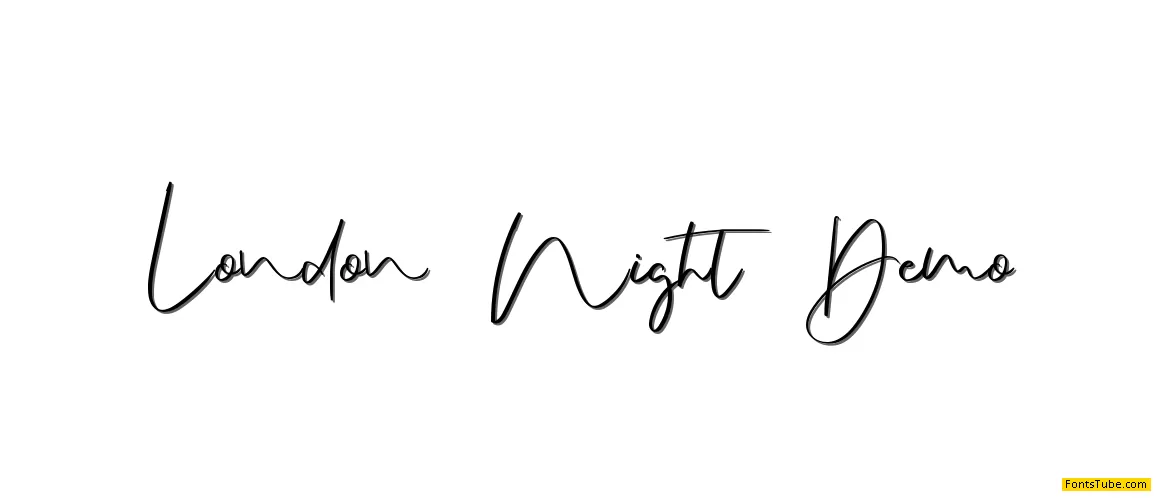 London Night Demo
FontsTube.com